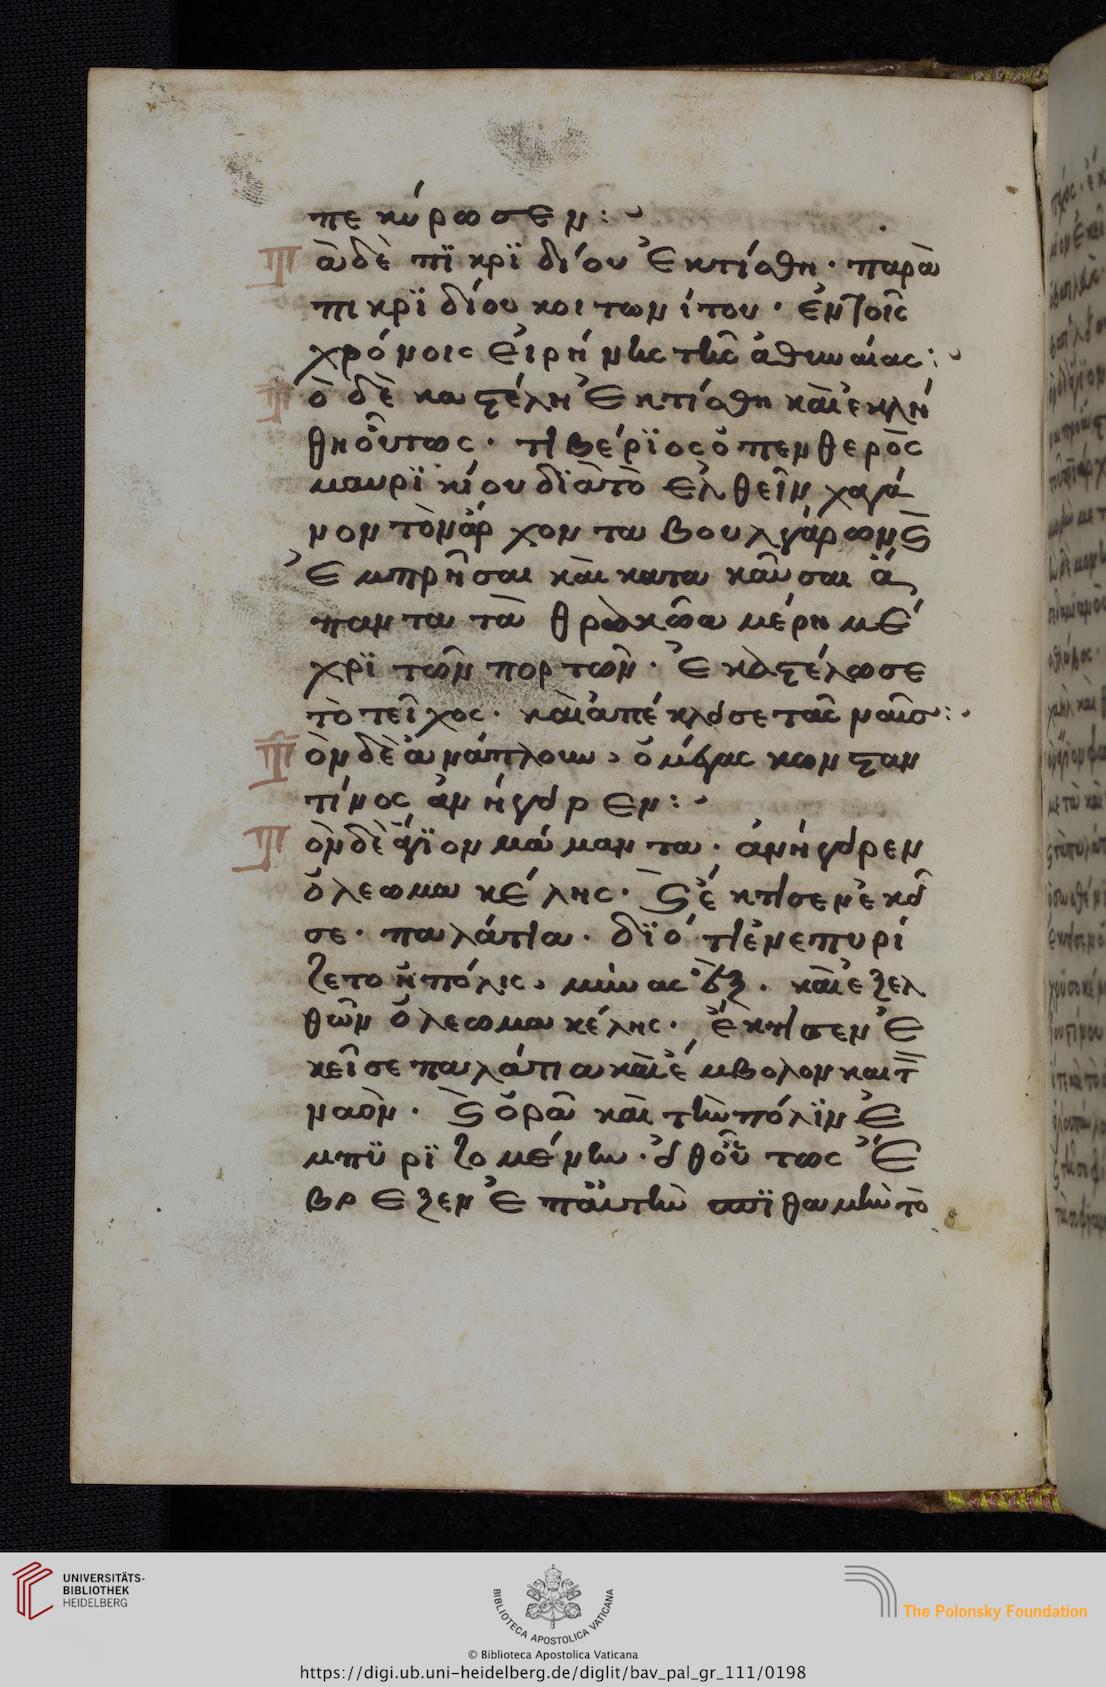 πεκύρωσεν:
Τὰ δὲ πϊκρϊδίου ἐκτίσθη· παρὰ
πικρϊδίου κοιτωνίτου· ἐν τοῖς
χρόνοις εἰρήνης τῆς ἀθηναίας:
Τὸ δὲ καστέλη ἐκτίσθη καὶ ἐκλή
θη οὕτως· τιβέρϊος ὁ πενθερὸς
μαυρϊκίου διὰ τὸ ἐλθεῖν χαγά
νον τὸν ἄρχον τα βουλγάρων ϛ̀
ἐμπρῆσαι καὶ κατακαῦσαι ἅ
παντα τὰ θρακῶα μέρη μέ
χρϊ τῶν πορτῶν· ἐκαστέλωσε
τὸ τεῖχος· καὶ ἀπέκλεισε τὰς ναῦς:
Τὸν δὲ ἀνάπλουν, ὁ μέγας κωνσταν
τίνος ἀνήγειρεν:
Τὸν δὲ ἅγϊον μάμαντα· ἀνήγειρεν
ὁ λεωμακέλης· ϛ̀ ἔκτησεν ἐκεῖ
σε· παλάτια· δϊότι ἐνεπυρί
ζετο ἡ πόλις, μῆνας β̅ζ̅. καὶ ἐξελ
θὼν ὁ λεωμακέλης· ἔκτησεν ἐ
κεῖσε παλάτια καὶ ἔμβολον και τ̅
ναὸν· ϛ̀ ὁρᾶ καὶ τὴν πόλϊν ἐ
μπϋρϊζομένην· εἶθ οὕτως ἔ
βρεξεν ἐπ αὐτὴν σπϊθαμὴν τὸ
UNIVERSITÄTS-
BIBLIOTHEK
HEIDELBERG
BIBLIOTECA APOSTOLICA VATICANA
The Polonsky Foundation
© Biblioteca Apostolica Vaticana
https://digi.ub.uni-heidelberg.de/diglit/bav_pal_gr_111/0198